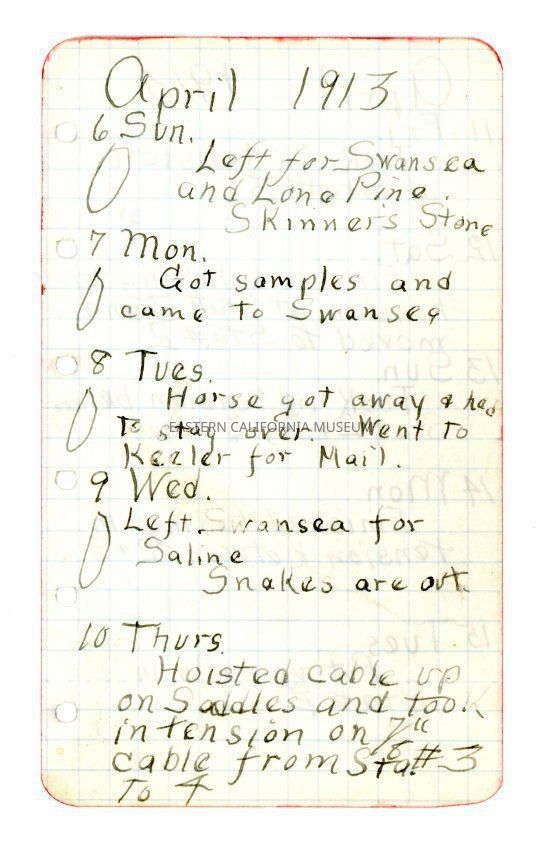 April 1913
6 Sun.
Left for Swansea
and Lone Pine.
Skinners Store
7 Mon.
Got samples and
came to Swansea
8 Tues.
Horse got away & had
To stay over. Went To
EASTERN CALIFORNIA MUSEUM
Keeler for Mail.
9 Wed.
Left Swansea for
Saline
Snakes are out.
10 Thurs.
Hoisted cable up
on Saddles and took
in tension on 7/8"
cable from Sta. #3
To 4